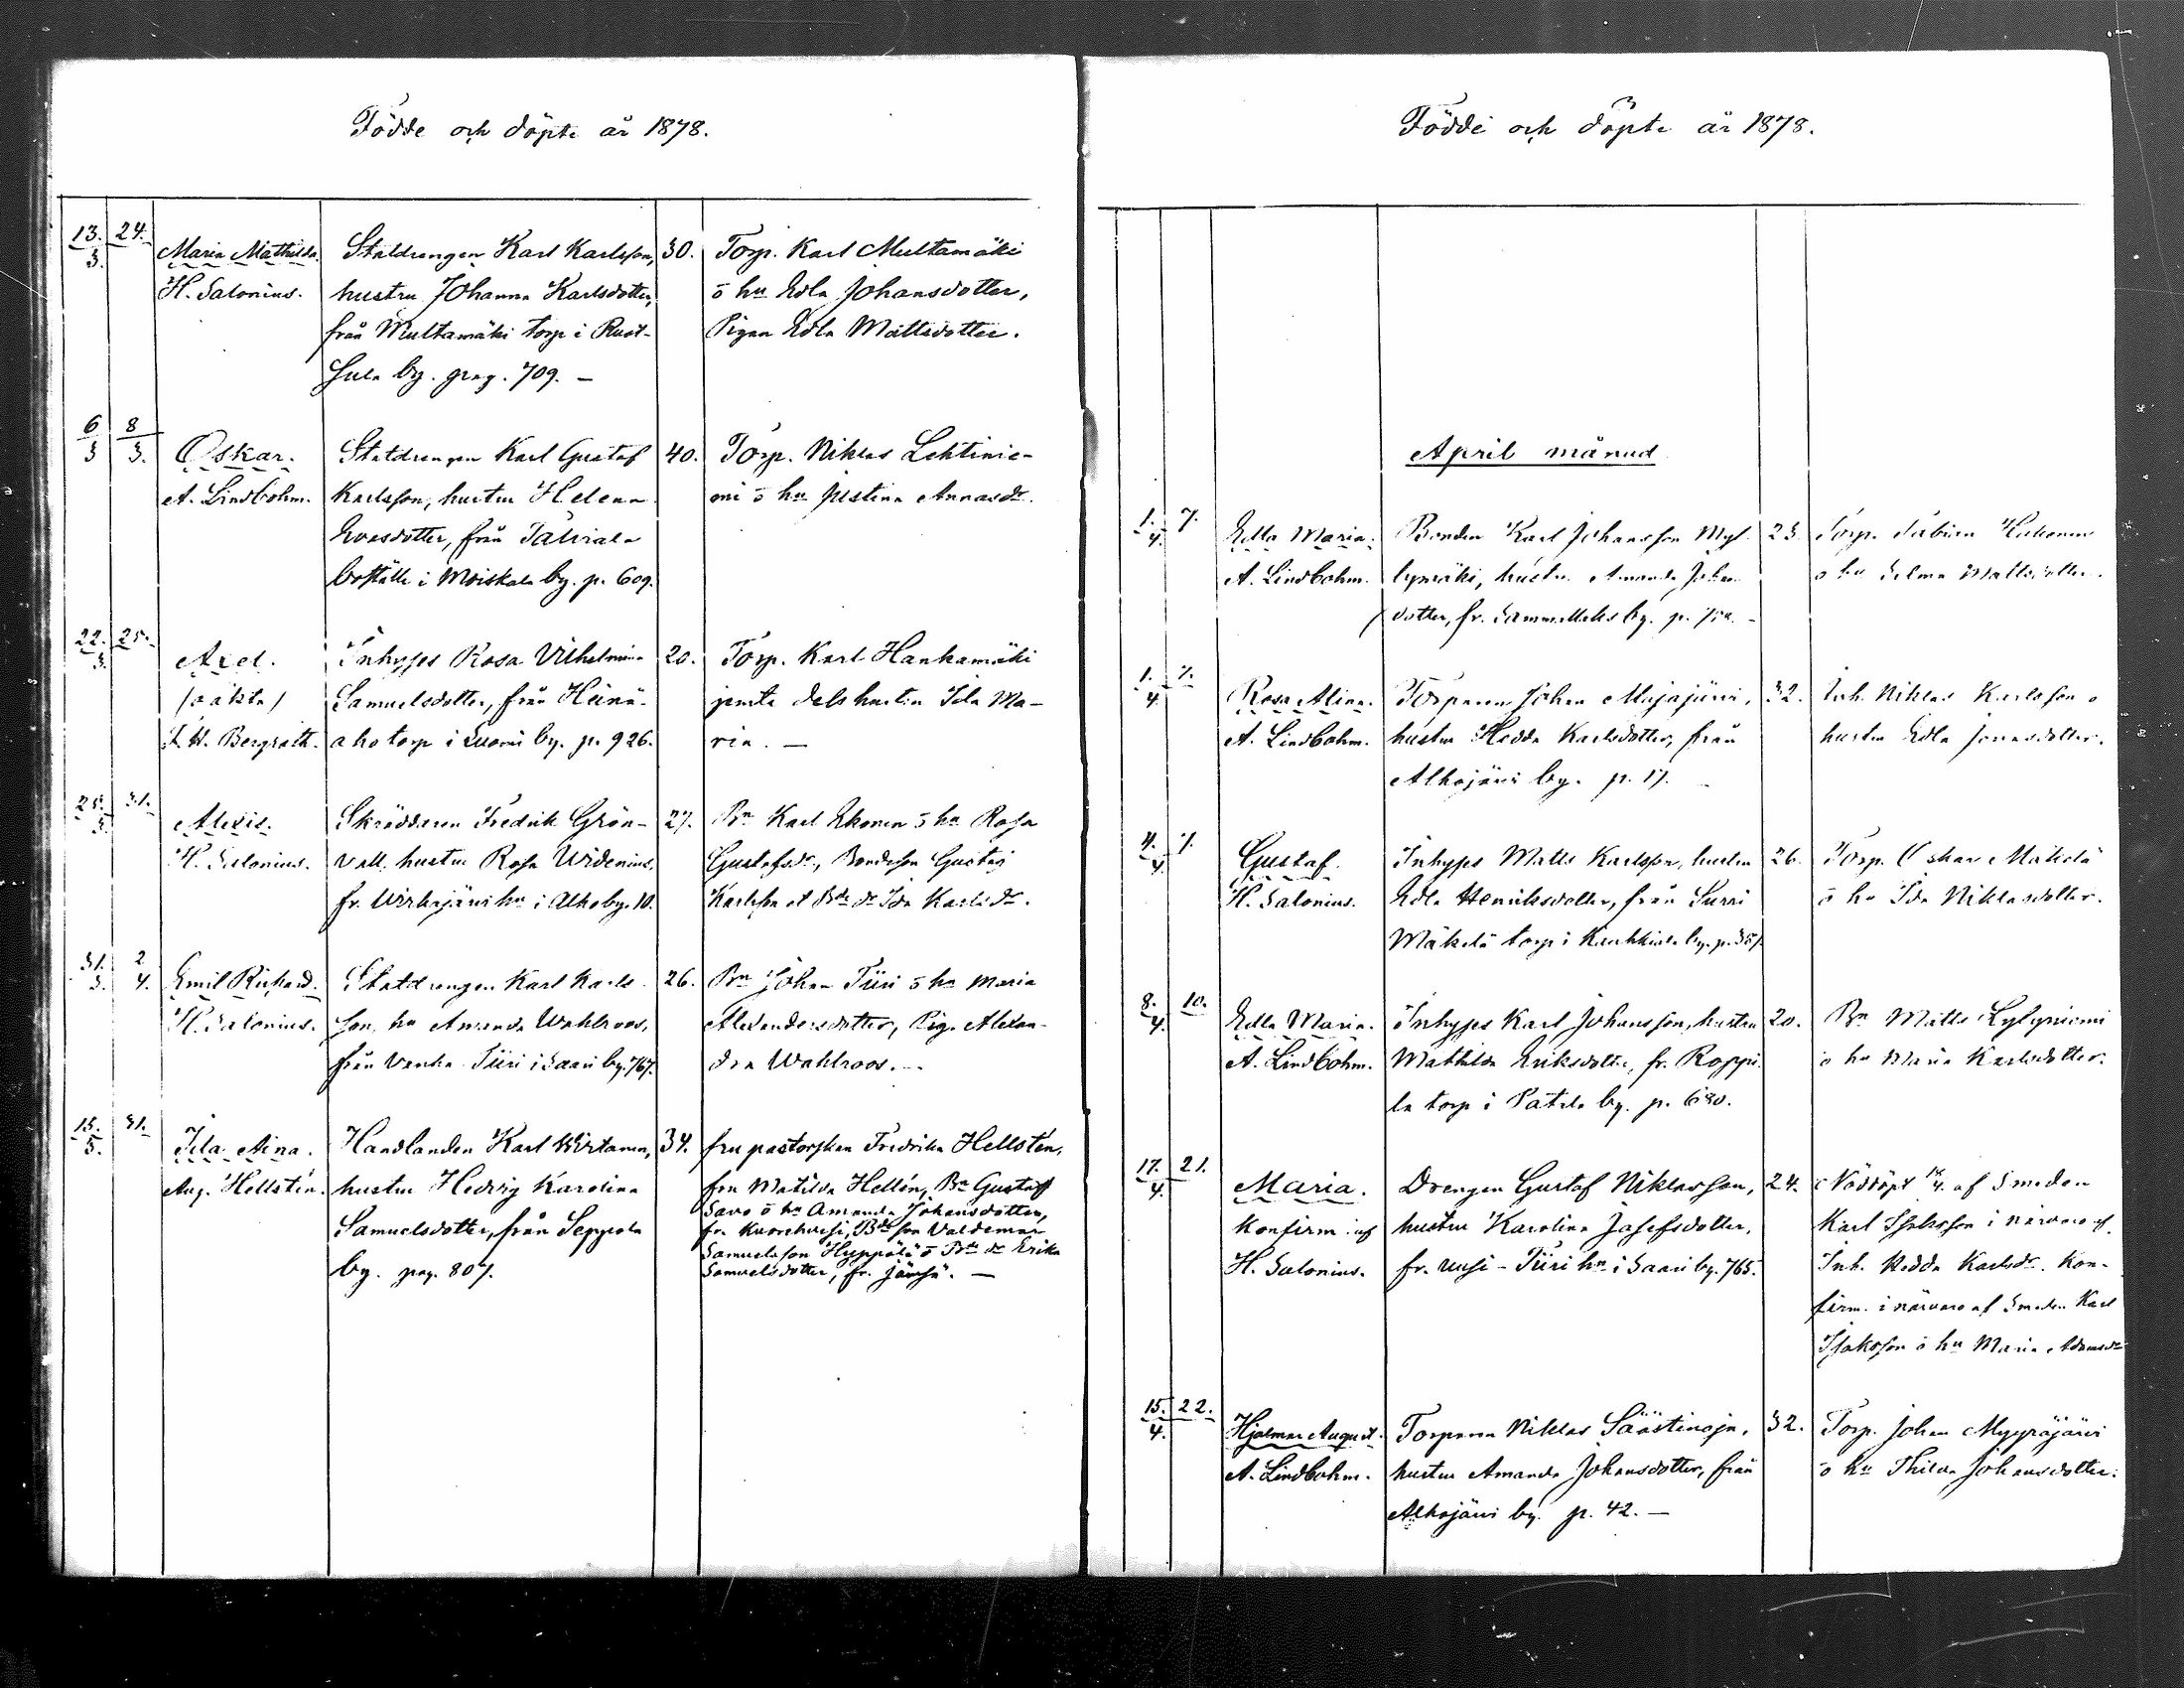 Födde och döpte år 1878.
13. 24.
3.
Maria Mathilda.
H. Salonius.
Statdrengen Karl Karlsson,
hustru Johanna Karlsdotter,
från Multamäki torp i Rust-
by. pag. 709. —
30.
Torp. Karl Multamäki
o hu Edla Johansdotter,
Pigan Edla Mattsdotter.
6 8
3 3.
Oskar.
A. Lindbohm.
Statdrengen Karl Gustaf
Karlsson, hustru Helena
Evasdotter, från
boställe i Moiskala by. p. 609.
40.
Torp. Niklas Lehtinie-
mi o hu Justina Annasdr.
22. 25.
3.
Axel.
/oäkta/
Bergroth.
Inhyses Rosa Vilhelmina
Samuelsdotter, från Heinä-
aho torp i Suomi by. p. 926.
20.
Torp. Karl Hankamäki
jemte dels hustru Ida Ma-
ria. —
25. 31.
3.
Alexis.
H. Salonius.
Skräddaren Fredrik Grön-
vall, hustru Rosa Widenius,
fr. Wirkajärvi hn i Alho by. 10.
27.
Bn Karl Ekonen o hu Rosa
Gustafsdr, Bondeson Gustaf
Karlsson et Bde dr Ida Karlsdr.
31. 2
3. 4.
Emil Richard.
H. Salonius.
Statdrengen Karl Karls-
son, hu Amanda Wahlroos,
från Vanha Tiiri i Saari by. 767.
26.
Bn Johan Tiiri o hu Maria
Alexandersdotter, Pig. Alexan-
dra Wahlroos. —
15. 31.
3.
Ida Aina.
Aug. Hellstén.
Handlanden Karl Wirtanen,
hustru Hedvig Karolina
Samuelsdotter, från Seppola
by. pag. 807.
34.
fru pastorskan Fredrika Hellstén,
fru Matilda Hellén, Bn Gustaf
Savo o hu Amanda Johansdotter,
fr. Bde son Valdemar
Samuelsson Hyppölä o Bde dr Erika
Samuelsdotter, fr. Jämsä. —
Födde och döpte år 1878.
April månad
1. 7.
4.
Edla Maria.
A. Lindbohm.
Bonden Karl Johansson Myl-
lymäki, hustru Amanda Johans
dotter, fr. by. p.
23.
Torp.
o hu Selma Mattsdotter.
1. 7.
4.
Rosa Alina.
A. Lindbohm.
Torparen Johan Majajärvi,
hustru Hedda Karlsdotter, från
Alhojärvi by. p. 17.
32.
Inh. Niklas Karlsson o
hustru Edla Jonasdotter.
4. 7.
4.
Gustaf.
H. Salonius.
Inhyses Matts Karlsson, hustru
Edla Henriksdotter, från Surri
Mäkelä torp i by. p.
26.
Torp. Oskar Mäkelä
o hu Ida Niklasdotter.
8. 10.
4.
Edla Maria.
A. Lindbohm.
Inhyses Karl Johansson, hustru
Mathilda Eriksdotter, fr. Roppi-
la torp i Pätilä by. p. 680.
20.
Bn Matts Lylyniemi
o hu Maria Karlsdotter.
17. 21.
4.
Maria.
Konfirm. af
H. Salonius.
Drengen Gustaf Niklasson,
hustru Karolina Josefsdotter,
fr. Uusi-Tiiri hn i Saari by. 765.
24.
Nöddöpt 18/4. af Smeden
Karl Isaksson i närvaro af
Inh. Hedda Karlsdr. Kon-
firm. i närvaro af Smeden Karl
Isaksson o hu Maria Adamsdr
15. 22.
4.
Hjalmar August.
A. Lindbohm.
Torparen Niklas Säästinoja,
hustru Amanda Johansdotter, från
Alhojärvi by. p. 42. —
32.
Torp. Johan Myyräjärvi
o hu Thilda Johansdotter.